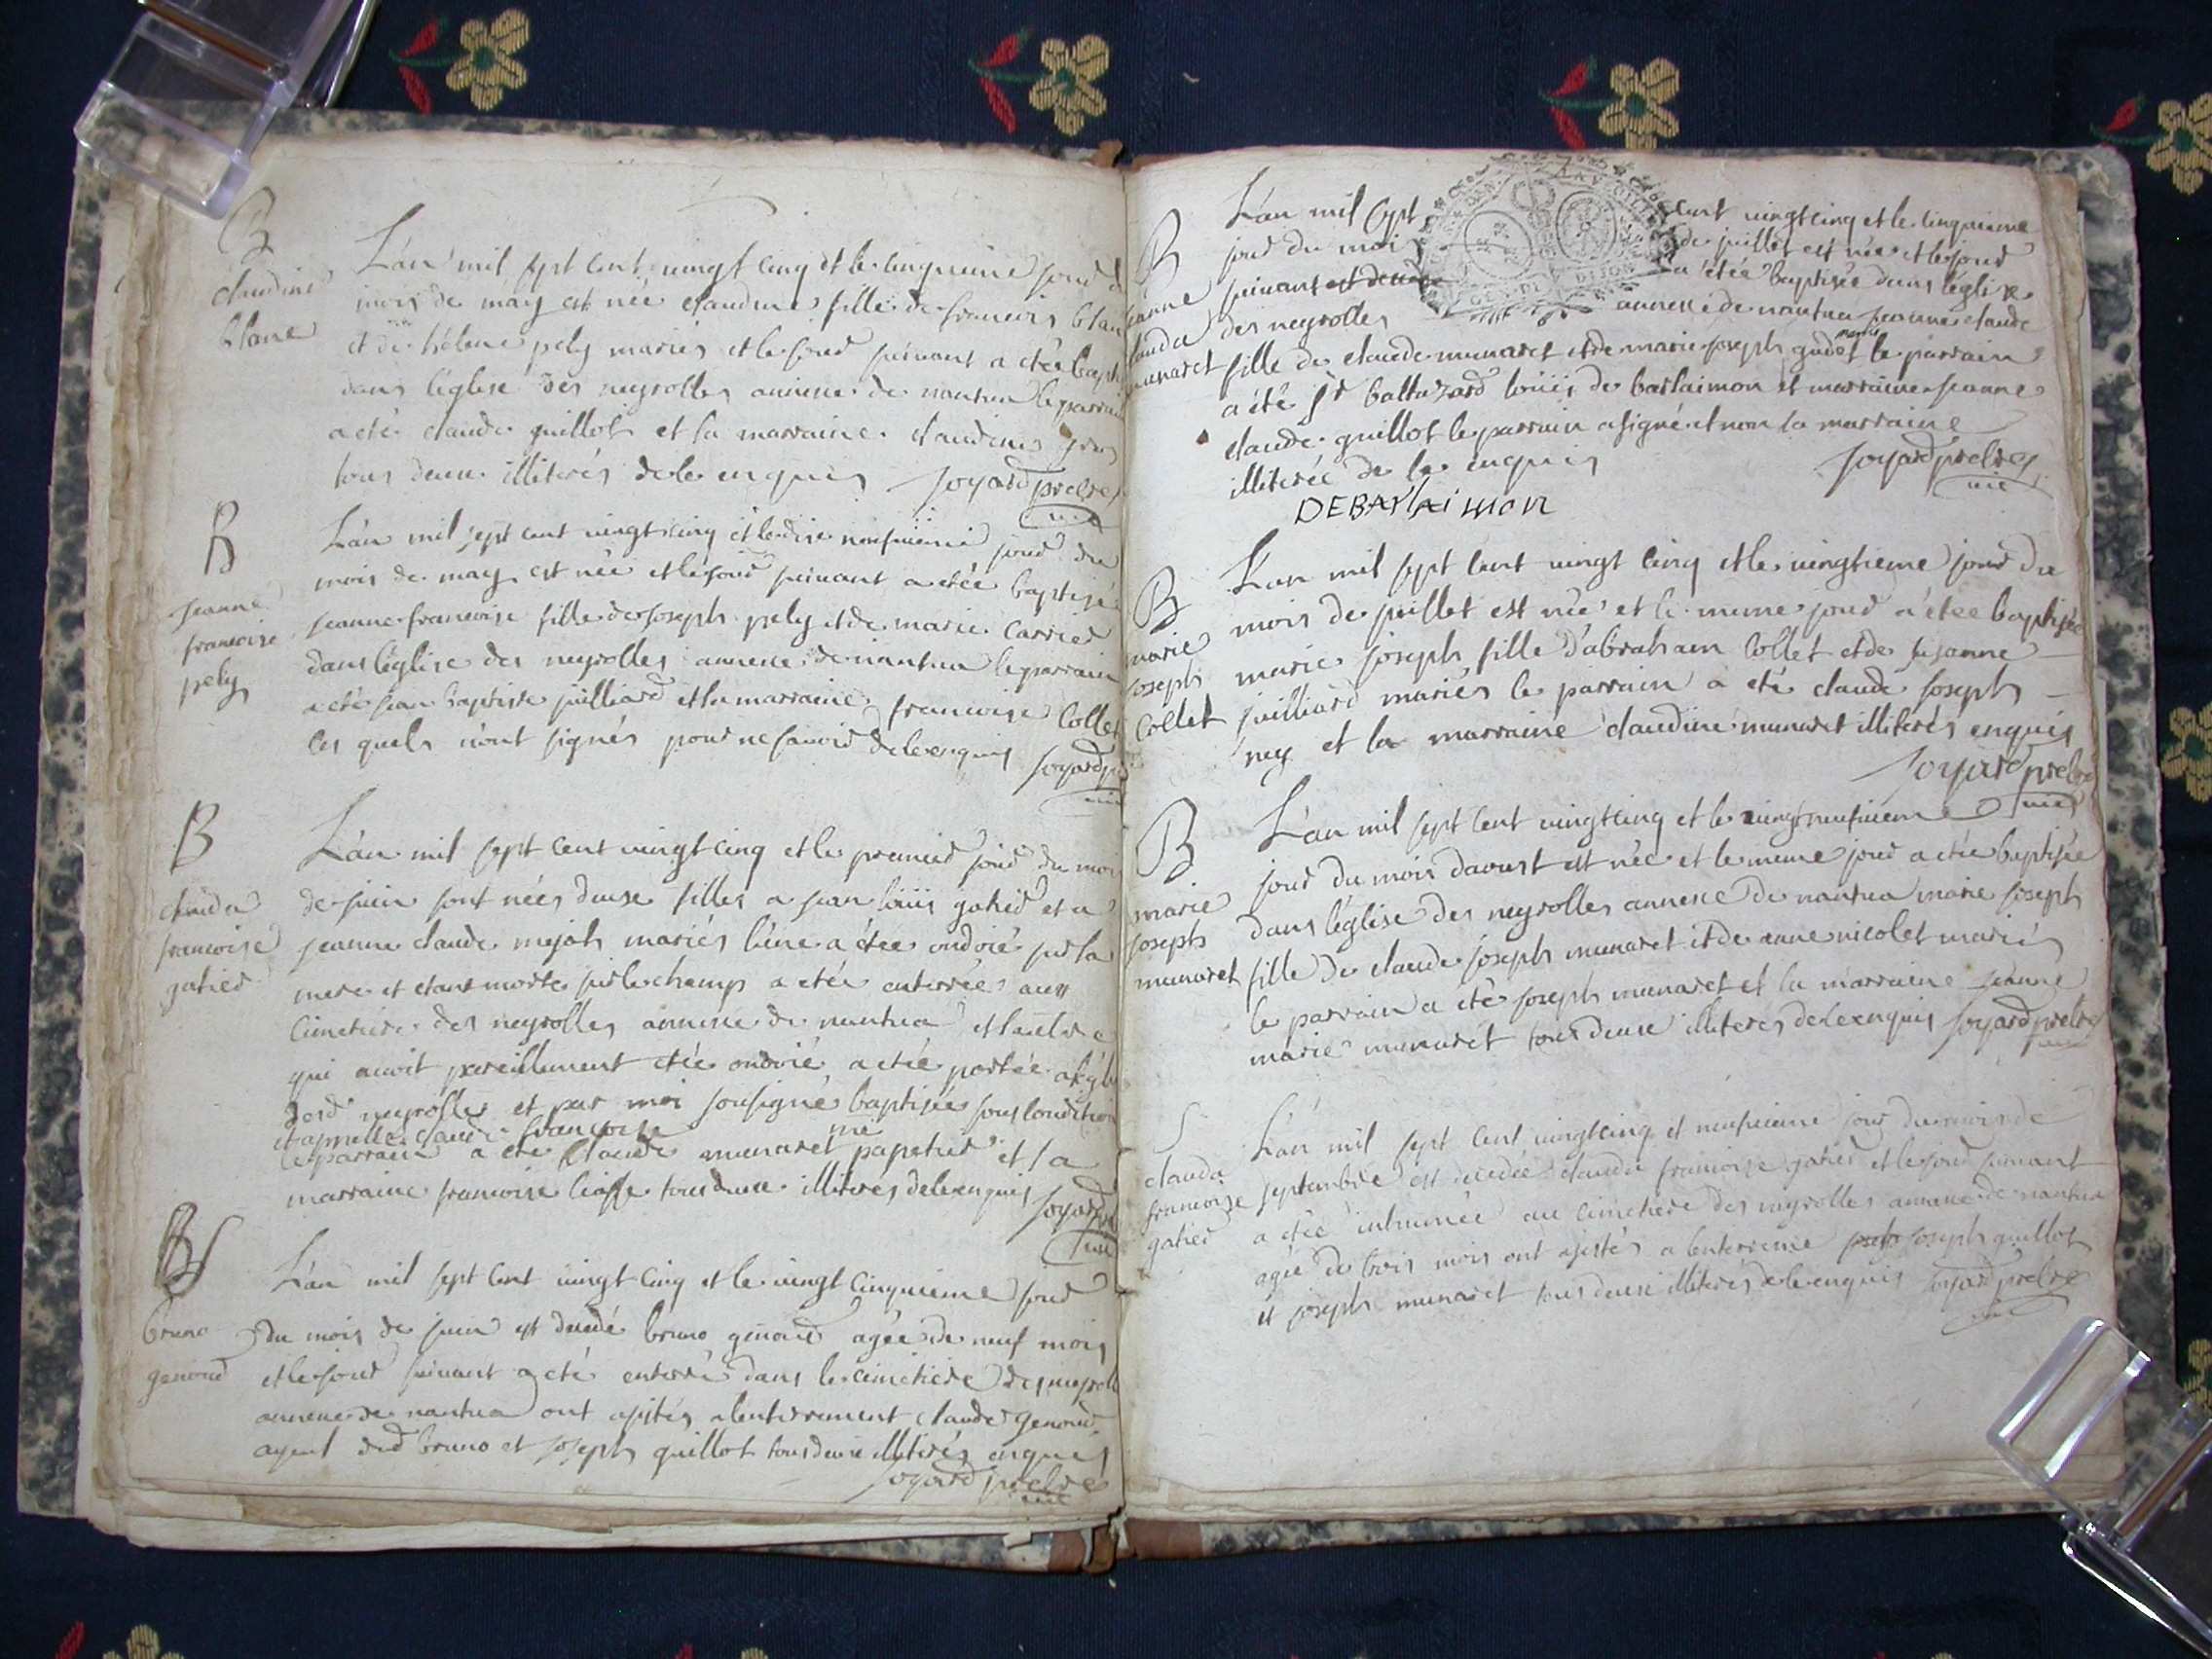 B
claudine
blanc
L'an mil sept cent vingt cinq et le cinquieme jour d
mois de may est née claudine fille de francois blan
et de hélene pely mariés et le jour suivant a etée bapt
dans l'église des neyrolles annexe de nantua le parrain
a eté claude guillot et la marraine claudine
tous deux illiterés de le enquis Joyard prebre
vic
B
jeanne
francoise
pely
L'an mil sept cent vingt cinq et le dix neufvieme jour du
mois de may est née et le jour suivant a etée baptisée
jeanne francoise fille de joseph pely et de marie carrier
dans l'église des neyrolles annexe de nantua le parrain
a eté jean baptiste juilliard et la marraine francoise collet
les quels n'ont signés pour ne savoir de le enquis Joyard p
vic
B
clauda
francoise
gatier
L'an mil sept cent vingt cinq et le premier jour du mois
de juin sont nées deux filles a jean loüis gatier et a
jeanne claude mejat mariés l'une a étée ondoié par la
mere et etant morte sur le champ a etée enterrée aux
cimetiere des neyrolles annexe de nantua et l'aultre
qui avoit pareillement etée ondoié a etée portée a l'égli
desd neyrolles et par moi sousigné baptisée sous condition
et appellée claude francoise
le parrain a eté claude munaret papetier et la
marraine francoise tous deux illiteres de le enquis Joyard
vic
B S
bruno
genoud
L'an mil sept cent vingt cinq et le vingt cinquieme jour
du mois de juin est decedé bruno genoud agée de neuf mois
et le jour suivant a eté enterré dans le cimetiere des neyroll
annexe de nantua ont asistés a l'enterrement claude genoud
ayeul dud bruno et joseph guillot tous deux illiterés enquis
Joyard prebre
vic
B
jeanne
clauda
munaret
L'an mil sept cent vingt cinq et le cinquieme
jour du mois de juillet est née et le jour
suivant est deced a étée baptisée dans l'église
des neyrolles annexe de nantua jeanne claude
fille de claude munaret et de marie joseph gudet mariés le parrain
a été sr baltazard loüis de barlaimon et marraine jeanne
claude guillot le parrain a signé et non la marraine
illiterée de le enquis Joyard prebre
vic
DEBARlAimon
B
marie
joseph
collet
L'an mil sept cent vingt cinq et le vingtieme jour du
mois de juillet est née et le meme jour a étée baptisée
marie joseph fille d'abraham collet et de susanne
juilliard mariés le parrain a eté claude joseph
ney et la marraine claudine munaret illiterés enquis
Joyard prebre
vic
B
marie
joseph
munaret
L'an mil sept cent vingt cinq et le vingt neufvieme
jour du mois daoust est née et le meme jour a etée baptisée
dans l'église des neyrolles annexe de nantua marie joseph
fille de claude joseph munaret et de anne nicolet mariés
le parrain a eté joseph munaret et la marraine jeanne
marie munaret tous deux illiterés de le enquis Joyard prebre
vic
S
clauda
francoise
gatier
L'an mil sept cent vingt cinq et neufvieme jour du mois de
septembre est decedée clauda francoise gatier et le jour suivant
a étée inhumée au cimetiere des neyrolles annexe de nantua
agée de trois mois ont asistés a l'enterreme joseph guillot
et joseph munaret tous deux illiterés de le enquis Joyard prebre
vic